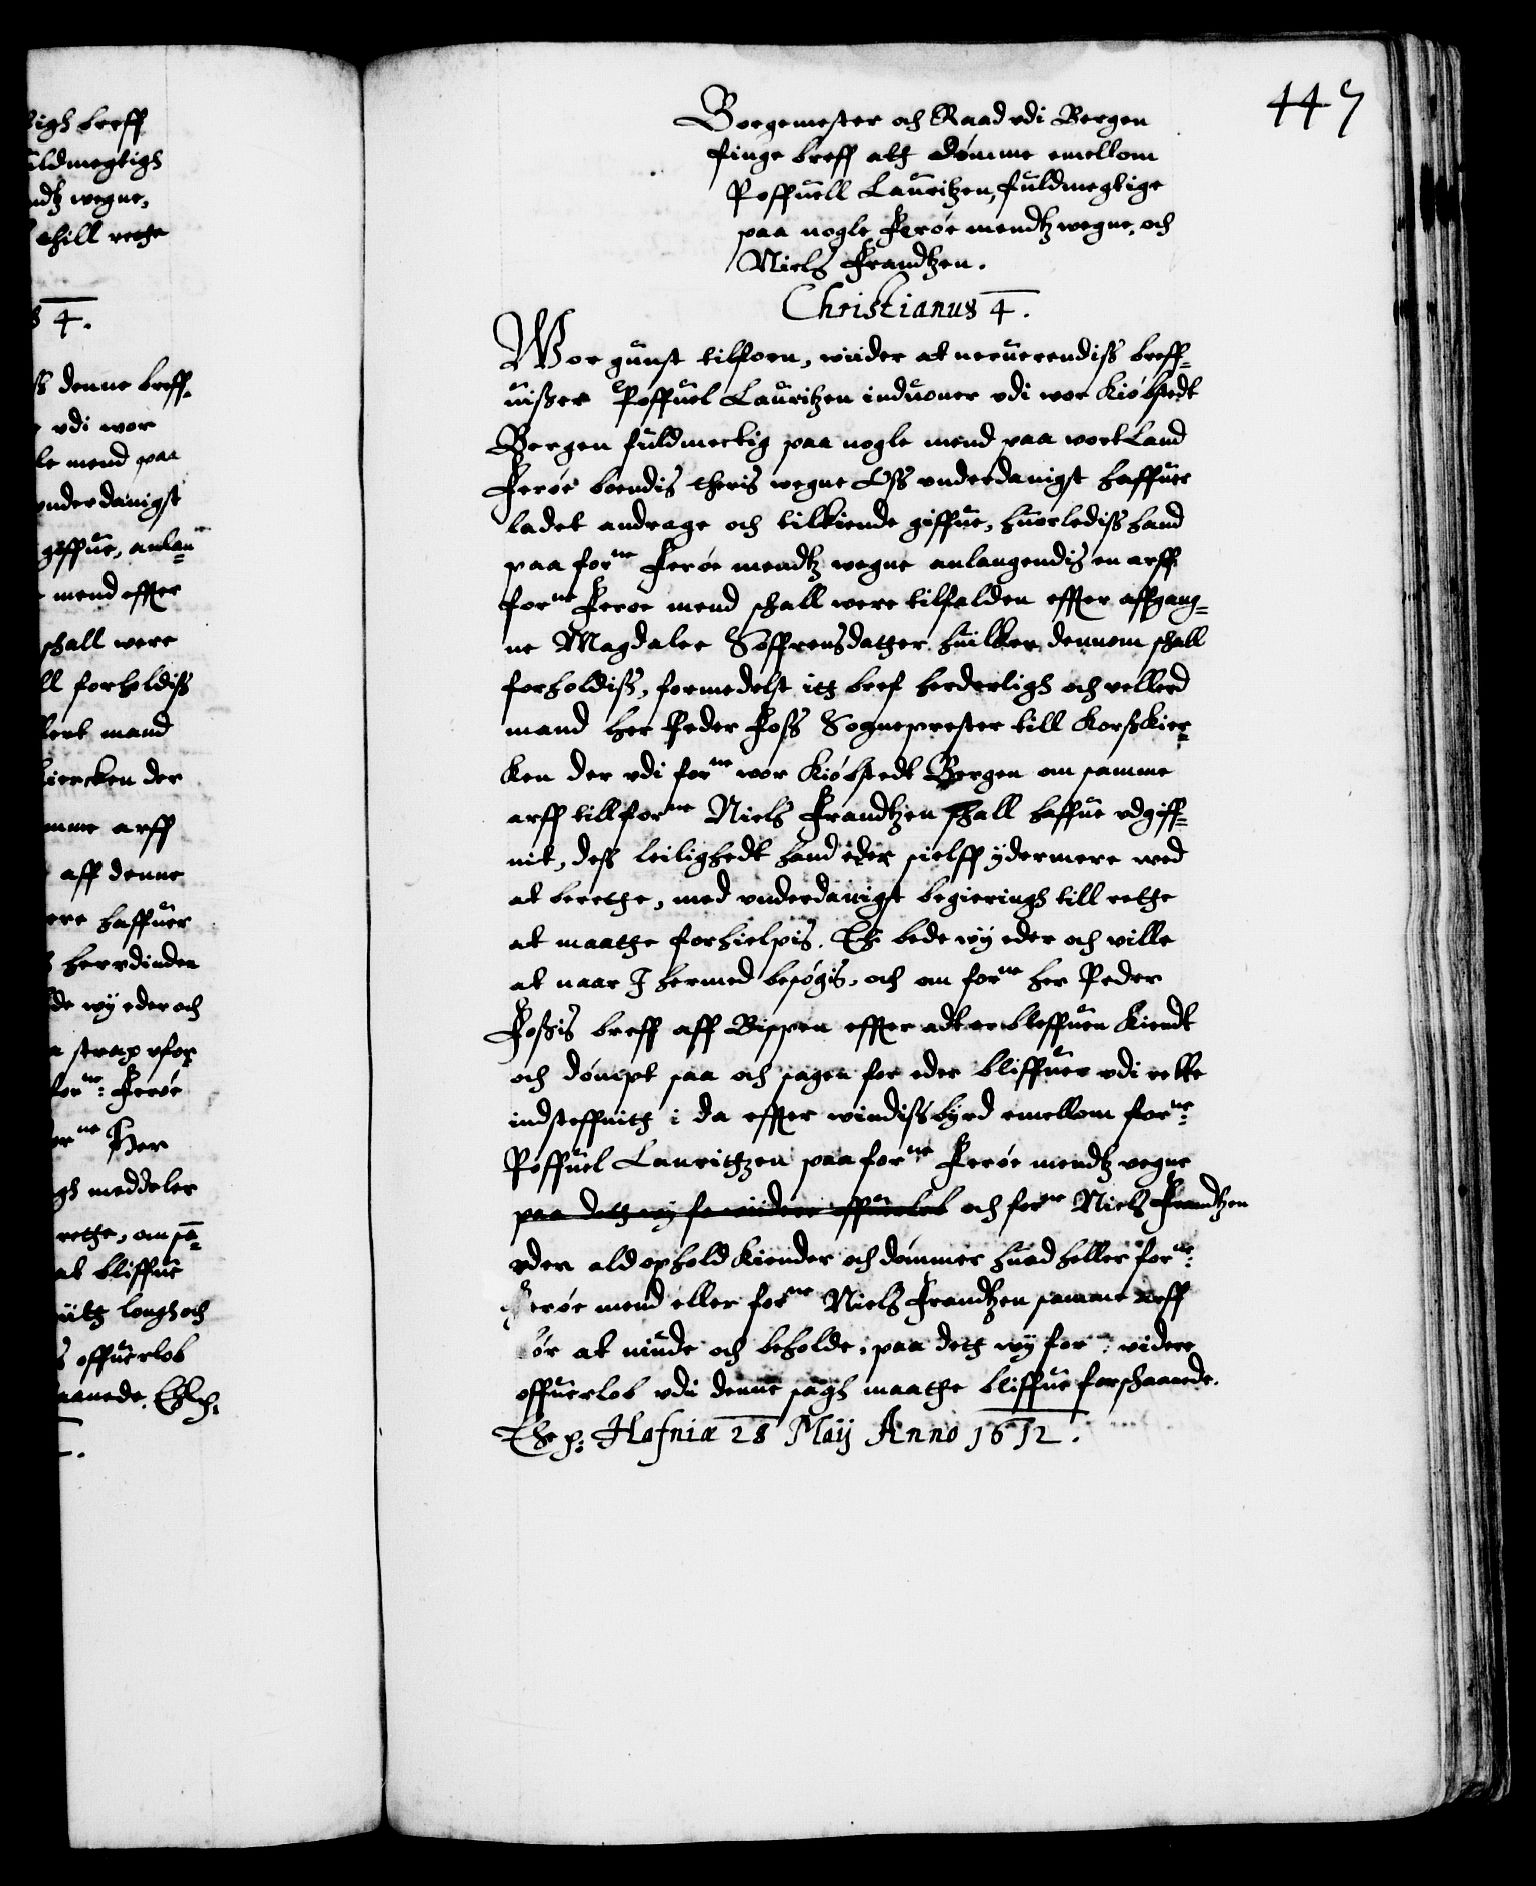 igh breff
uldmegtigh
ndtz wegne,
thill rette
s 4.
ss denne breff-
vdi wor
le mend paa
vnderdanigst
giffue, anlan
mend effter
schall were
ll forholdiss
lert mand
kiercken der
mme arff
aff denne
ere haffuer
her vdinden
de wy eder och
strax vfor
forne: Ferøe
orne Her
gh meddeler
rette, om sa-
at bliffue
uitz lough och
s offuerlob
aanede. Ehp:
447
Borgemester och Raad vdi Bergen
finge breff att dømme emellom
Poffuell Lauritzen, fuldmegtige
paa nogle Ferøe mendtz wegne, och
Niels Frandtzen.
Christianus 4.
Wor gunst tilforn, wiider at neruerendiss breff-
uisser Poffuel Lauritzen induoner vdi wor Kiøbstedt
Bergen fuldmectig paa nogle mend paa wort Land
Ferøe boendis theris wegne Oss vnderdanigst haffuer
ladet andrage och tilkiende giffue, huorlediss hand
paa forne Ferøe mendtz wegne anlangendis en arff
forne Ferøe mend schall were tilfalden effter affgang-
ne Magdalee Søffrensdatter huilken dennom schall
forholdiss, formedelst itt bref hederligh och vellerd
mand Her Peder Foss Sogneprester till Korsskier-
ken der vdi forne wor Kiøbstedt Bergen om samme
arff till forne Niels Frandtzen schall haffue vdgiff-
uit, dess leilighedt hand eder sielff ydermere wed
at berette, med vnderdanigst begieringh till rette
at maatte forhielpis. Thi bede wy eder och ville
at naar I hermed besøgis, och om forne her Peder
Fossis breff aff Bispen effter adt er bleffuen kiendt
och dømpt saa och sagen for eder bliffuer vdi rette
indsteffnitt i da effter windissbyrd emellom forne:
Poffuel Laurittzen paa forne Ferøe mendtz vegne
paa dett wy fo wiidere offuerlob och forne Niels Frandtzen
vden ald ophold kiender och dømmer huad heller forne:
Ferøe mend eller forne Niels Frandtzen samme arff
bør at niude och beholde, paa dett wy for: videre
offuerlob vdi denne sagh maatte bliffue forschaanede.
Ehp: Hafniæ 28 Maij Anno 1612.